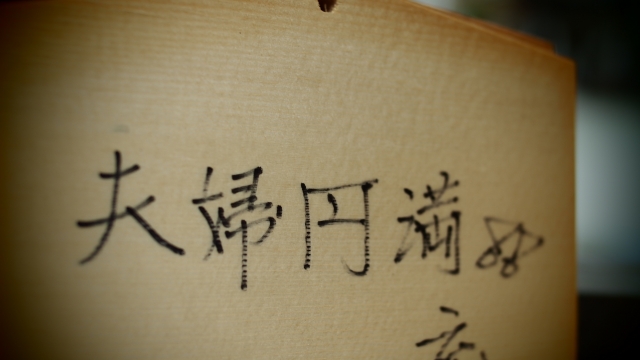 夫婦円満